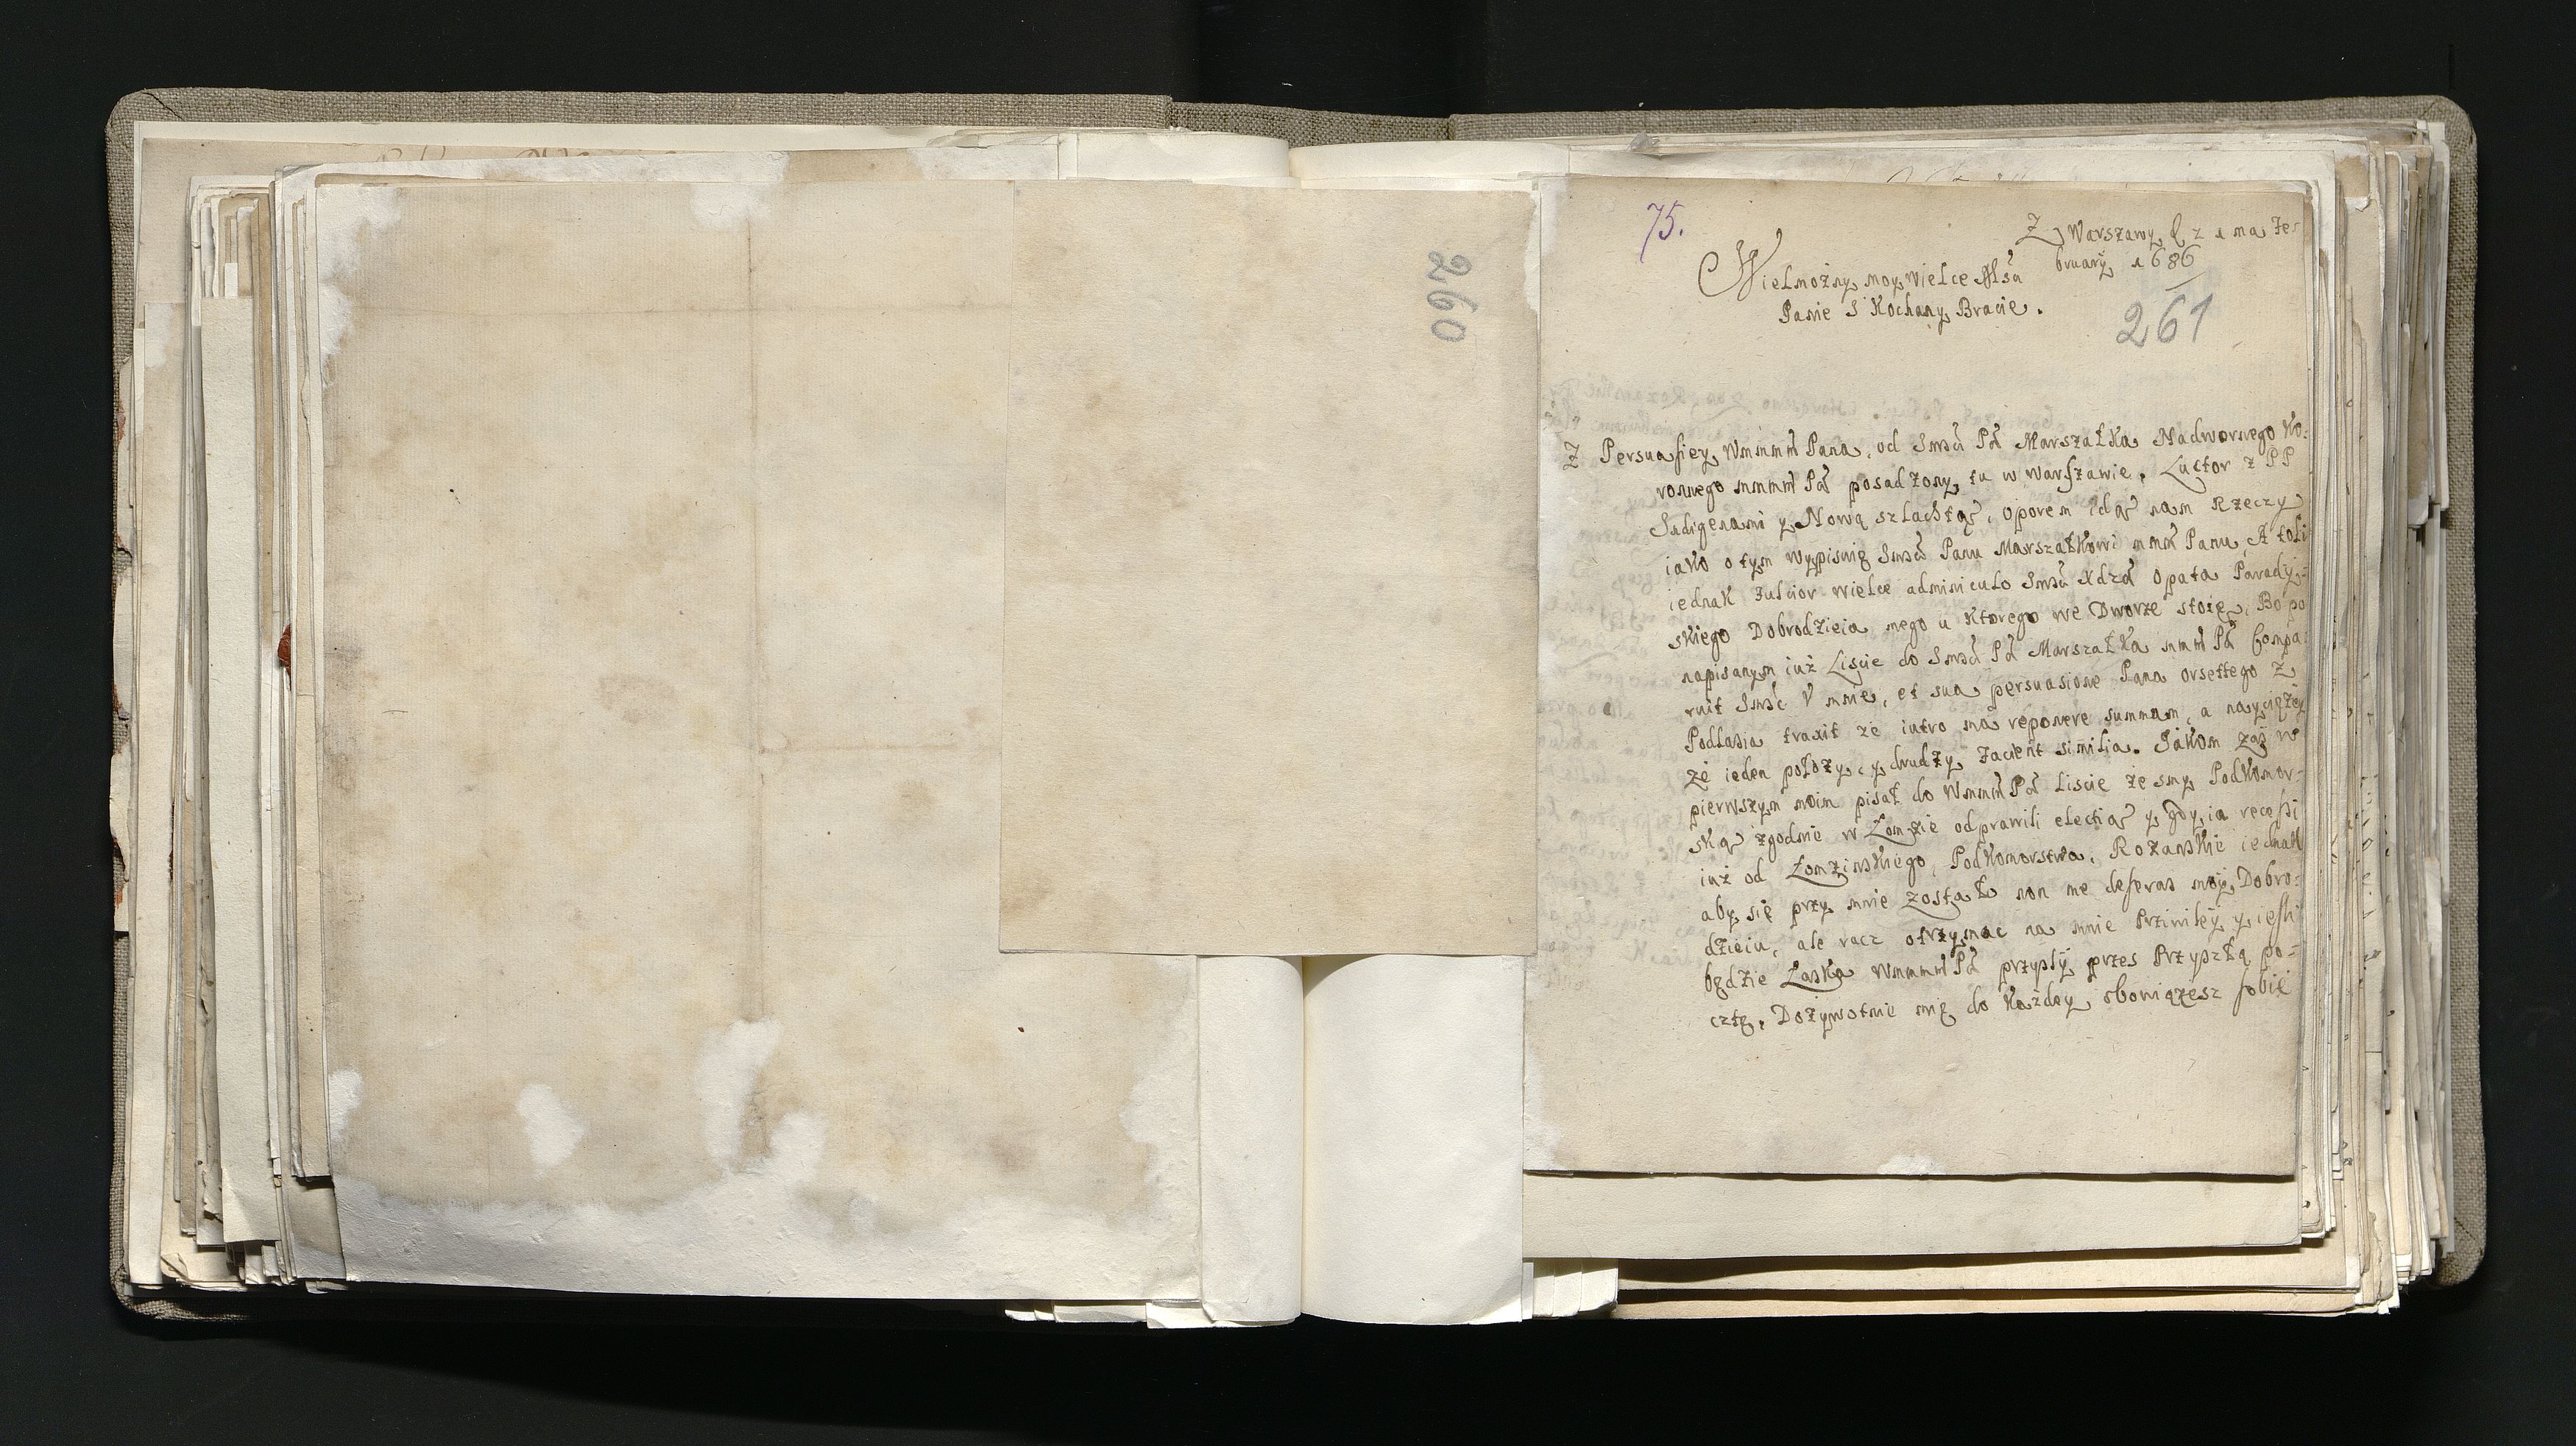 260
75.
Z Warszawy d 21 ma Fe
bruarÿ 1686
261
Wielmożny moy wielce Msċ
Panie I Kochany Bracie.
Z Persuasiey Wmmmm Pana, od Jmści Pa Marszałka Nadwornego Ko-
ronnego mmmm Pa posadzony tu w Warszawie. Luctor z PP
Indigenami y Nową szlachtą, oporem idą nam Rzeczy
iako o tym wypisuię Jmści Panu Marszałkowi mmm Panu, A toli
iednak Fulcior wielce adminiculo Jmści Xdza Opata Parady-
skiego Dobrodzieia mego u ktorego we Dworze stoię, Bo po
napisanym iuż Liscie do Jmści Pa Marszałka mmm Pa Compa
ruit Jmść V mnie, et sua persuasione Pana Orsettego z
Podlasia traxit że iutro ma reponere summam, a nayciężey
że ieden położy, y drudzy facient similia. Jakom zaś w
pierwszym moim pisał do Wmmm Pa Liscie że smy Podkomor-
ską zgodnie w Łomzie odprawili electią y gdy ia recessi
iuż od Łomzinskiego Podkomorstwa, Rożanskie iednak
aby się przy mnie zostało non me deseras moy Dobro-
dzieiu, ale racz otrzymac na mnie Przwiley y iesli
będzie Łaska Wmmmm Pa przysly przes Przyszłą po-
cztę, Dożywotnie mię do każdey obowiązesz sobie